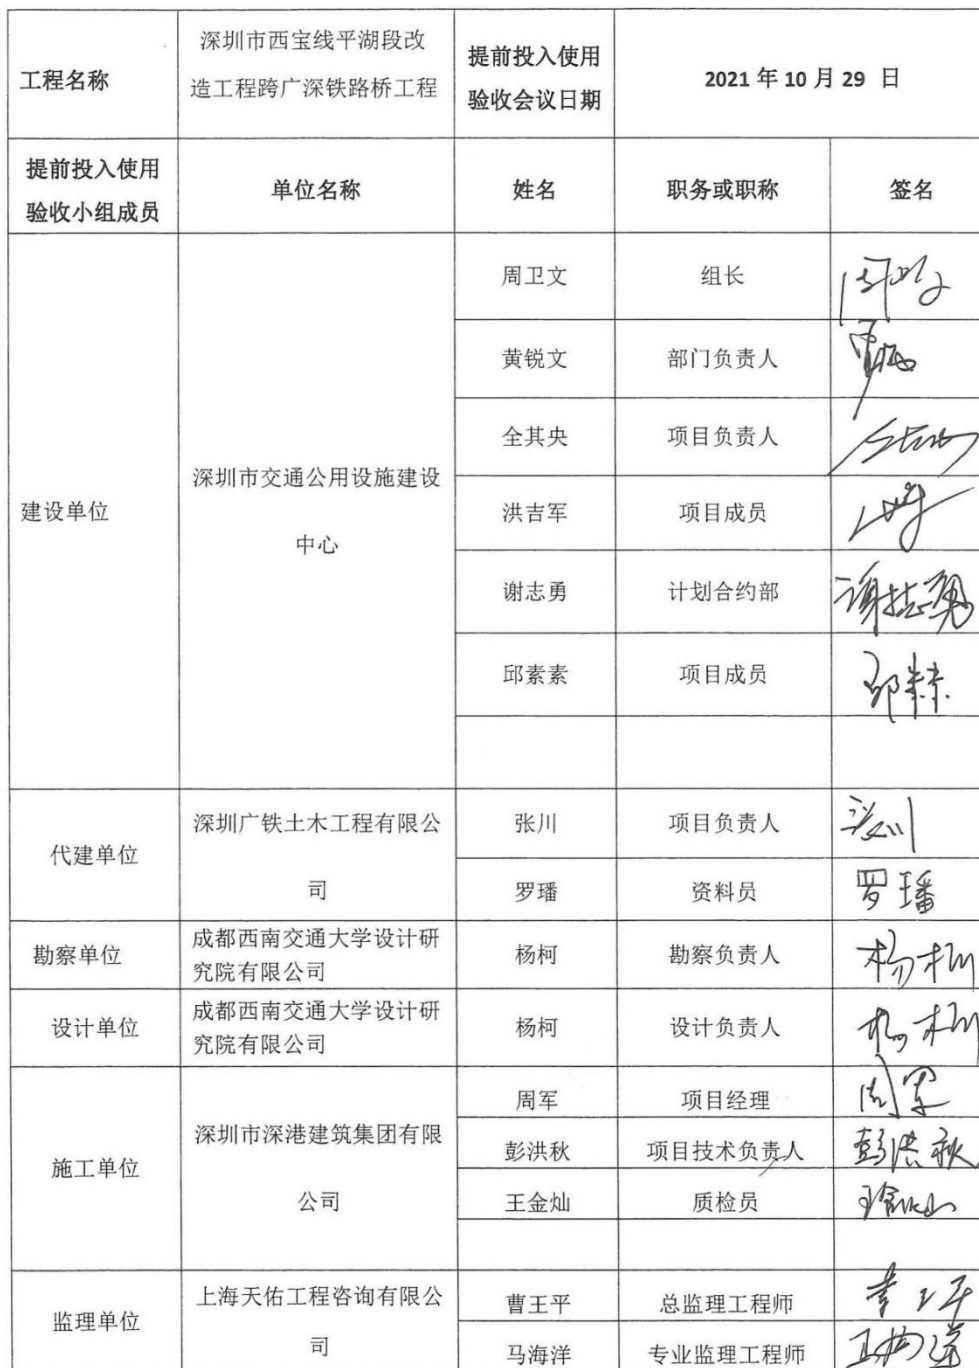 工程名称
深圳市西宝线平湖段改
造工程跨广深铁路桥工程
提前投入使用
验收会议日期
2021 年 10 月 29 日
提前投入使用
验收小组成员
单位名称
姓名
职务或职称
签名
建设单位
深圳市交通公用设施建设
中心
周卫文
组长
黄锐文
部门负责人
全其央
项目负责人
洪吉军
项目成员
谢志勇
计划合约部
谢志勇
邱素素
项目成员
代建单位
深圳广铁土木工程有限公
司
张川
项目负责人
张川
罗璠
资料员
罗璠
勘察单位
成都西南交通大学设计研
究院有限公司
杨柯
勘察负责人
杨柯
设计单位
成都西南交通大学设计研
究院有限公司
杨柯
设计负责人
杨柯
施工单位
深圳市深港建筑集团有限
公司
周军
项目经理
周军
彭洪秋
项目技术负责人
彭洪秋
王金灿
质检员
监理单位
上海天佑工程咨询有限公
司
曹王平
总监理工程师
马海洋
专业监理工程师